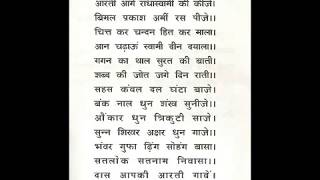 आरती आगे राधास्वामी की कीजै।
बिमल प्रकाश अमीं रस पीजे।।
चित्त कर चन्दन हित कर माला।
आन चढ़ाऊं स्वामी दीन दयाला।।
गगन का थाल सुरत की बाती।
शब्द की जोत जगे दिन राती।।
सहस कंवल दल घंटा बाजे।
बंक नाल धुन शंख सुनीजे।।
ओंकार धुन त्रिकुटी साजे।
सुन्न शिखर अक्षर धुन गाजे।।
भंवर गुफा ढ़िंग सोहंग बासा।
सतलोक सतनाम निवासा।।
दास आपकी आरती गावें